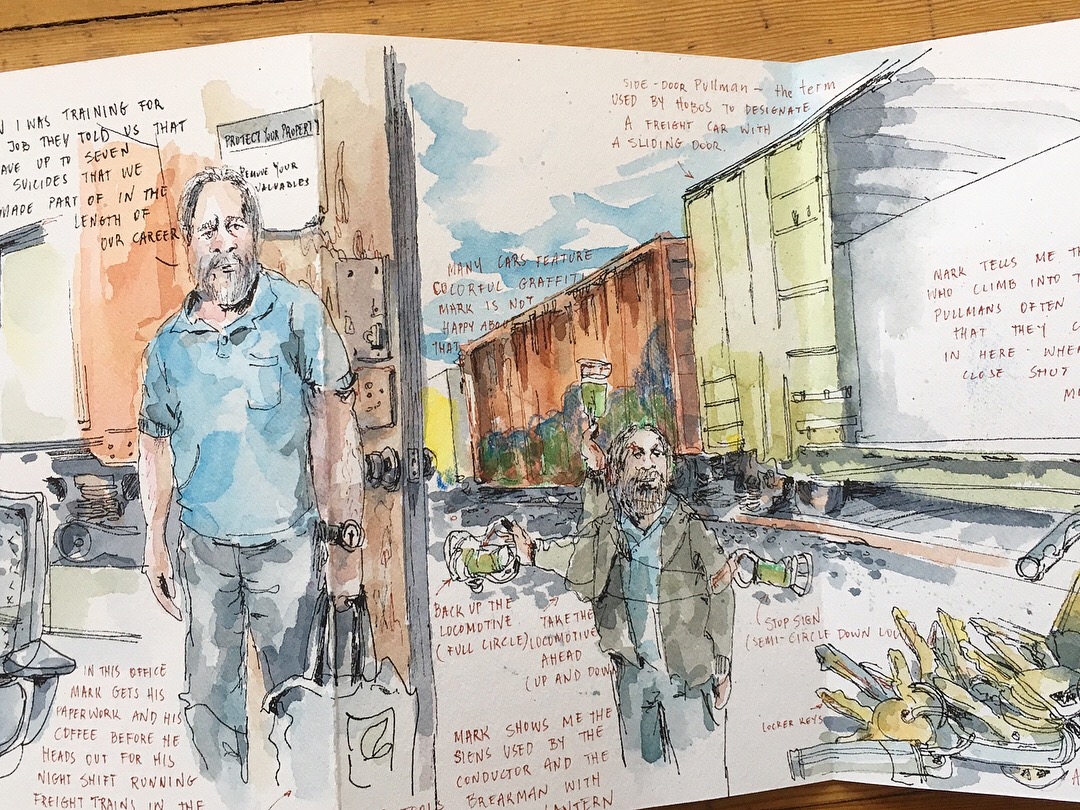 I WAS TRAINING FOR
JOB THEY TOLD US THAT
UP TO SEVEN
SUICIDES THAT WE
MADE PART OF IN THE
LENGTH OF
OUR CAREER
PROTECT YOUR PROPERTY
REMOVE YOUR
VALUABLES
IN THIS OFFICE
MARK GETS HIS
PAPERWORK AND HIS
COFFEE BEFORE HE
HEADS OUT FOR HIS
NIGHT SHIFT RUNNING
FREIGHT TRAINS IN THE
MANY CARS FEATURE
COLORFUL GRAFFITI
MARK IS NOT
HAPPY ABOU
THAT
SIDE-DOOR Pullman - the term
USED BY HOBOS TO DESIGNATE
A FREIGHT CAR WITH
A SLIDING DOOR.
BACK UP THE
LOCOMOTIVE
(FULL CIRCLE)
TAKE THE
LOCOMOTIVE
AHEAD
(UP AND DOWN
STOP SIGN
(SEMI-CIRCLE DOWN LOW
MARK SHOWS ME THE
SIGNS USED BY THE
CONDUCTOR AND THE
BREAKMAN WITH
LANTERN
MARK TELLS ME
WHO CLIMB INTO
PULLMANS OFTEN
THAT THEY
IN HERE WHE
CLOSE SHUT
M
LOCKER KEYS